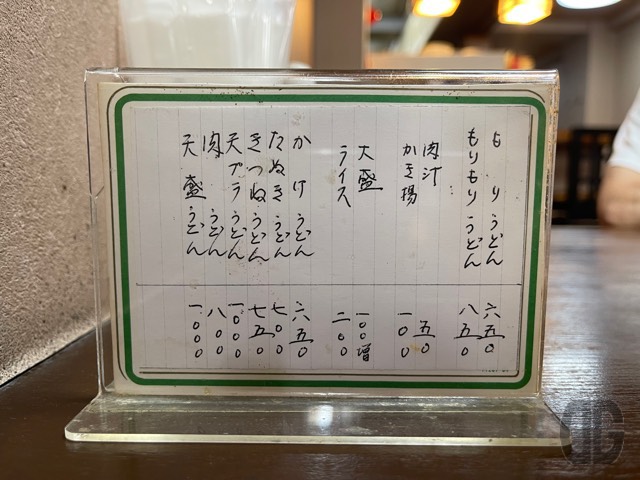 もりうどん 六五〇
もりもりうどん 八五〇
肉汁 五〇
かき揚 一〇〇
大盛 一〇〇増
ライス 二〇〇
かけうどん 六五〇
たぬきうどん 七〇〇
きつねうどん 七五〇
天プラうどん 一〇〇〇
肉うどん 八〇〇
天盛うどん 一〇〇〇